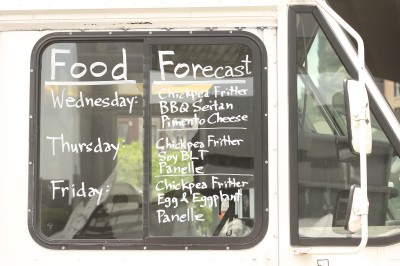 Food Forecast
Wednesday: Chickpea Fritter
BBQ Seitan
Pimento Cheese
Thursday: Chickpea Fritter
Soy BLT
Panelle
Friday: Chickpea Fritter
Egg & Eggplant
Panelle